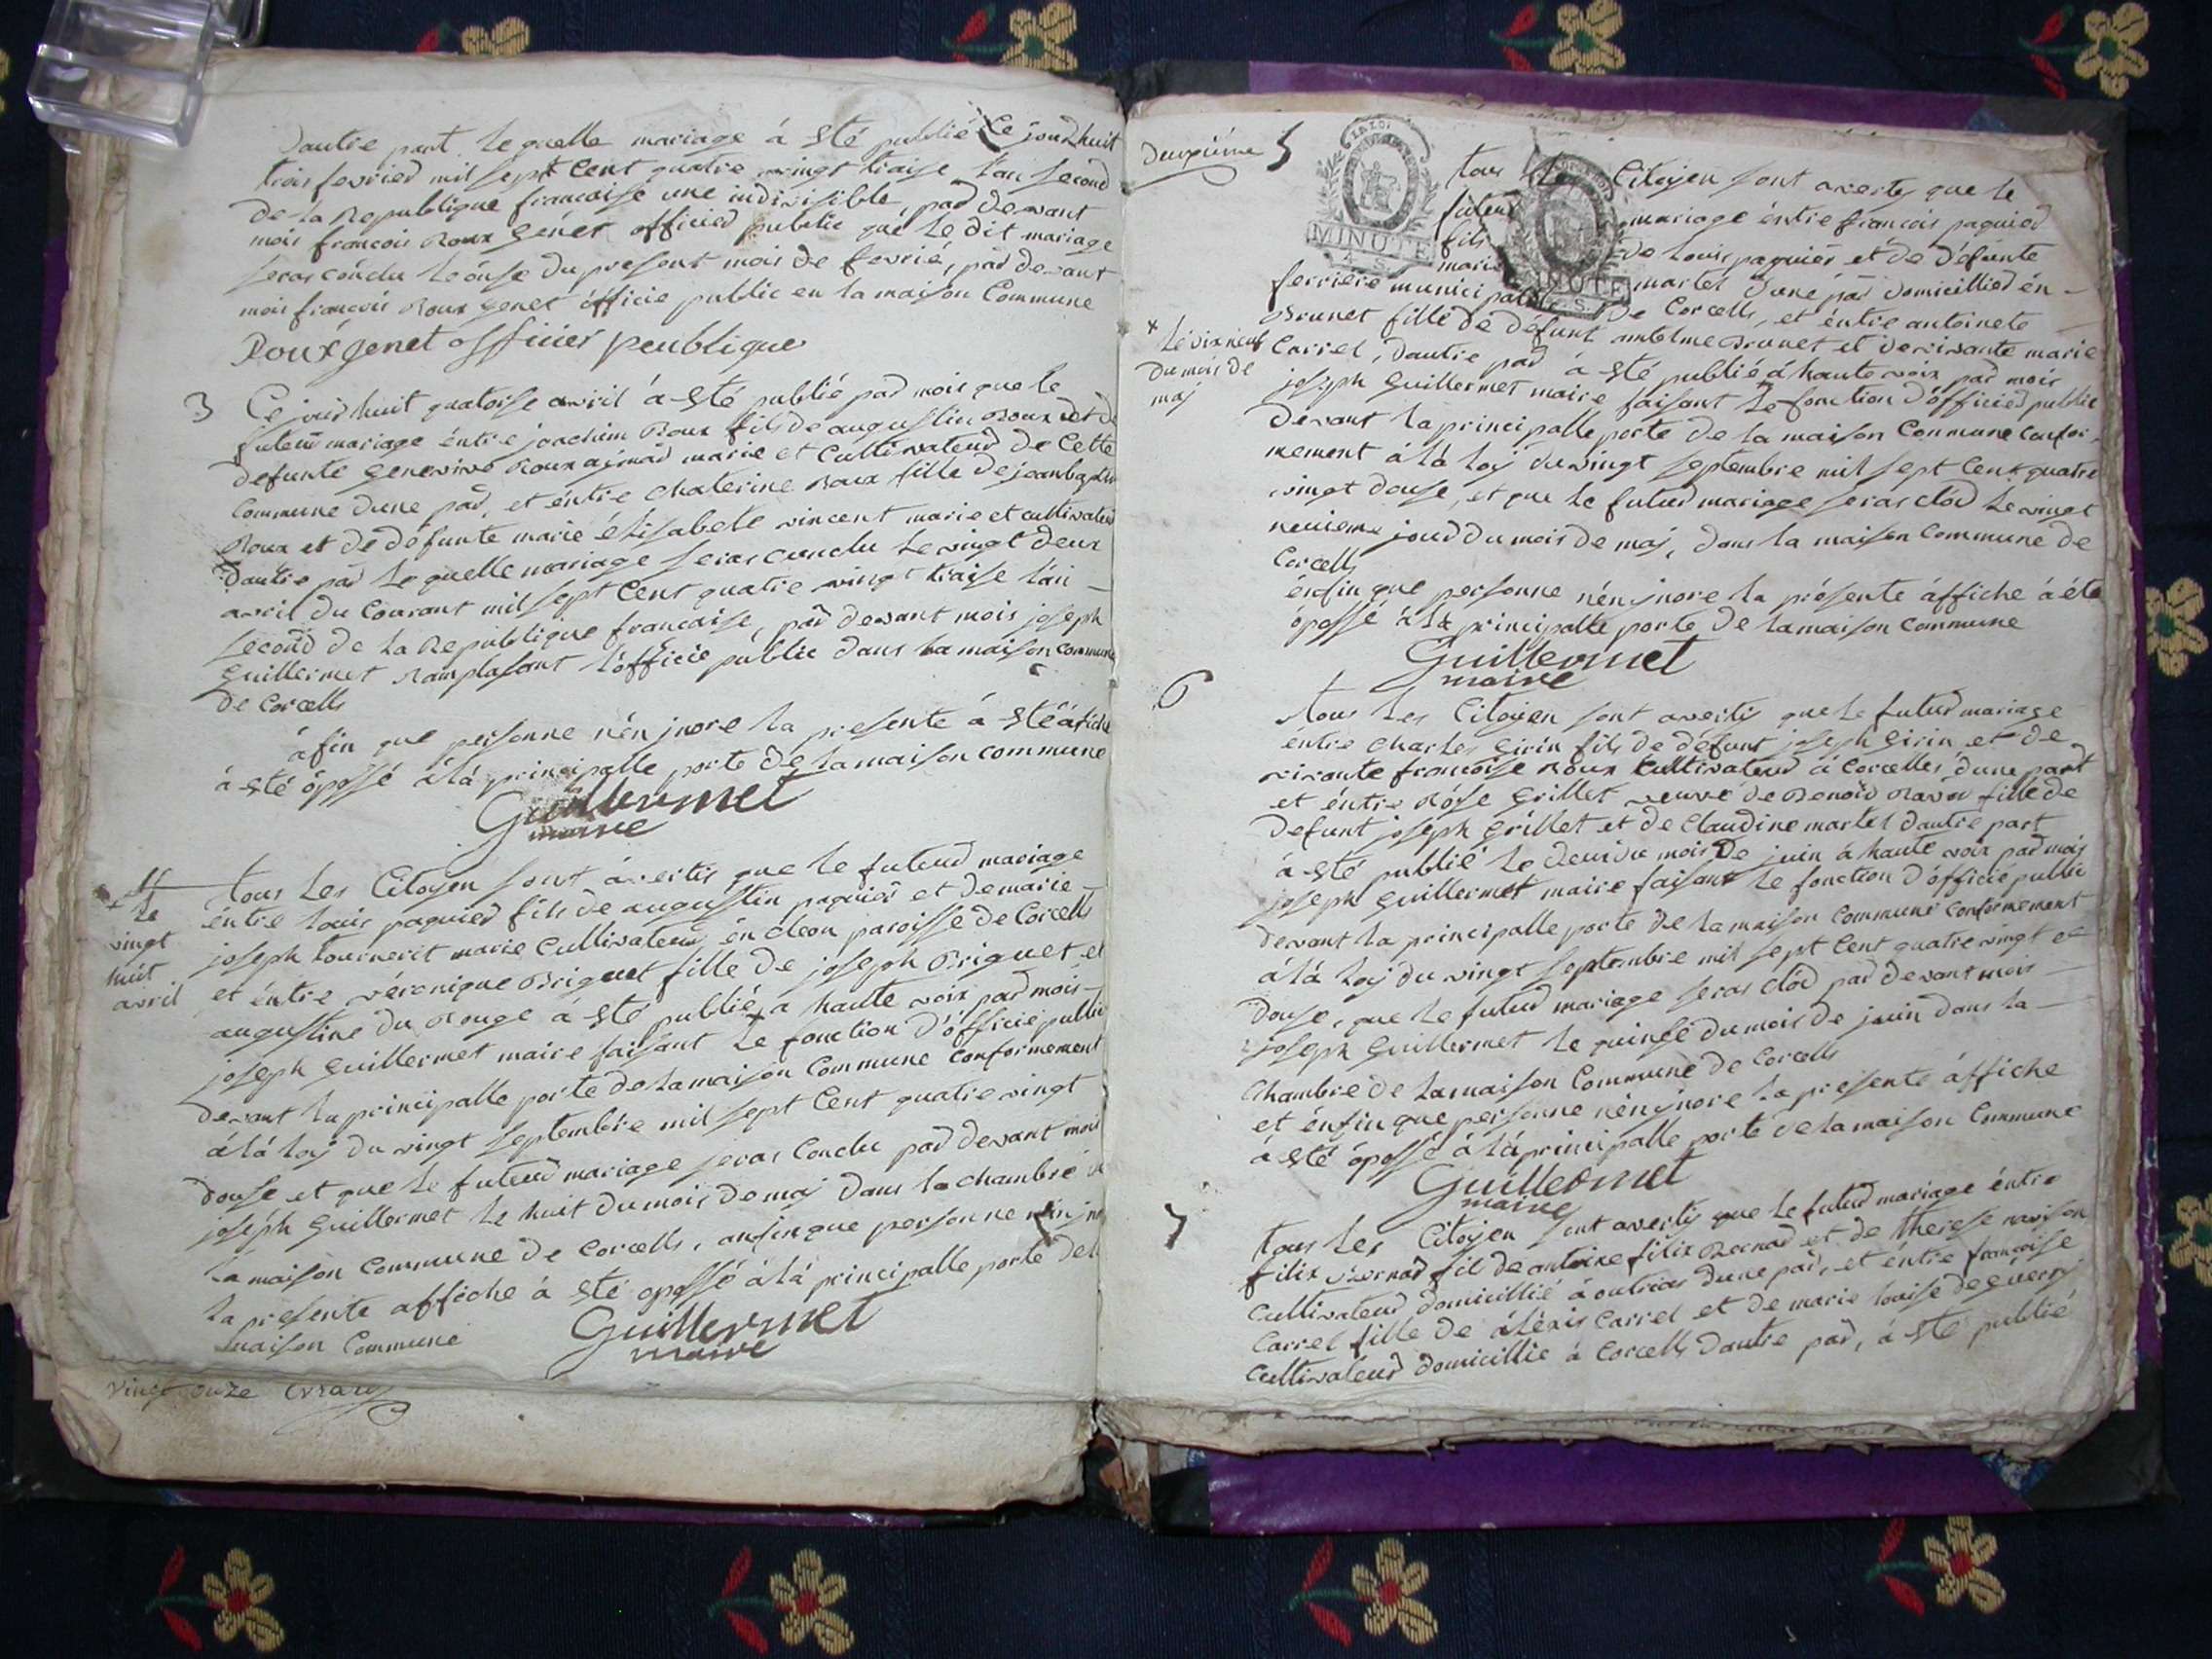 dautre part lequelle mariage á Sté publié Ce jourdhuit
trois fevried mil sept Cent quatre vingt traise l'an second
de la Republique francaise une indivisible, pad devant
mois francois Roux Genet officied public que le dit mariage
seras cónclu le onse du present mois de fevrié, pad devant
mois francois Roux genet officié public en la maison Commune
Rouxgenet officier peublique
3 Ce jourdhuit quatorse avril á Sté publié pad mois que le
futeur mariage éntre joachim Roux fils de augustin Roux et de
defunte genevieve Roux aimad marié et Cultivateud de Cette
Commune dune pad, et éntre Chaterine Roux fille de jeanbaptiste
Roux et de défunte marie élisabete vincent marié et cultivateud
dautre pad lequelle mariage seras cunclu le vingt deux
avril du Courant mil sept Cent quatre vingt traise l'an
second de la Republique francaise, pad devant mois joseph
guillermet ramplasant l'officié public dans la maison commune
de Corcells
áfin que personne nén jnore la presente á Sté áfiche
á Sté ópossé á lá principalle porte de la maison commune
Guillermet
maire
4
+ le
vingt
huit
avril
tous les Citoyen sont ávertis que le futeud mariage
entre louis paquied fils de augustin paquier et de marie
joseph tourneret marié Cultivateud én cleon paroisse de Corcells
et éntre véronique Briguet fille de joseph Briguet et
augustine du Rouge á Sté publié, + á haute voix pad mois
joseph Guillermet maire faisant le fonction d'officié public
devant la principalle porte de la maison Commune conformement
á lá loy du vingt septembre mil sept Cent quatre vingt
douse et que le futeud mariage seras Conclu pad devant mois
joseph Guillermet le huit du mois de maj dans la chambre de
la maison Commune de Corcells, anfin que personne nén jnore
la presente affiche á Sté opossé á lá principalle porte de la
maison Commune
Guillermet
maire
vingt onze
deuxiéme 5
MINUTE
MINUTE
tous les Citoyen sont avertis que le
futeud mariage éntre francois paquied
fils de louis paquier et de défunte
marie martel dune pad domicillied én
ferriere municipalité de Corcells, et éntre antoinete
Brunet fille de défunt antelme Brunet et de vivante marie
+ le dix neuf
du mois de
maj
Carrel, dautre pad á Sté publié á haute voix pad mois
joseph Guillermet maire faisant le fonction d'officied public
devant la principalle porte de la maison Commune Confor-
mement á lá loy du vingt septembre mil sept Cent quatre
vingt douse, et que le futud mariage seras clod le vingt
neuieme joud du mois de maj, dans la maison commune de
Corcells
énfin que personne nén jnore la présente áffiche á été
ópossé á la principalle porte de la maison commune
Guillermet
maire
6
tous les Citoyen sont avertis que le futud mariage
éntre Charles Girin fils de défunt joseph girin et de
vivante francoise Roux Cultivateud á Corcelles dune part
et éntre Róse Grillet veuve de Benoid Ravod fille de
defunt joseph Grillet et de Claudine martel dautre part
á Sté publié le deux du mois de juin á haute voix pad mois
joseph Guillermet maire faisant le fonction d'officié public
devant la principalle porte de la maison Commune conformement
á lá loy du vingt septembre mil sept Cent quatre vingt et
douse, que le futud mariage seras clód pad devant mois
joseph Guillermet le quinse du mois de juin dans la
Chambre de la maison Commune de Corcells
et énfin que personne nén jnore la presente áffiche
á Sté ópossé á lá principalle porte de la maison Commune
Guillermet
maire
7
tous les Citoyen sont avertis que le futud mariage éntre
filix Bernad fils de antoine filix Bernad et de therese
Cultivateud domicillié á outriaz dune pad, et éntre francoise
Carrel fille de álèxis Carrel et de marie lóuise de guerry
Cultivateud domicillié á Corcells dautre pad, á Sté publié